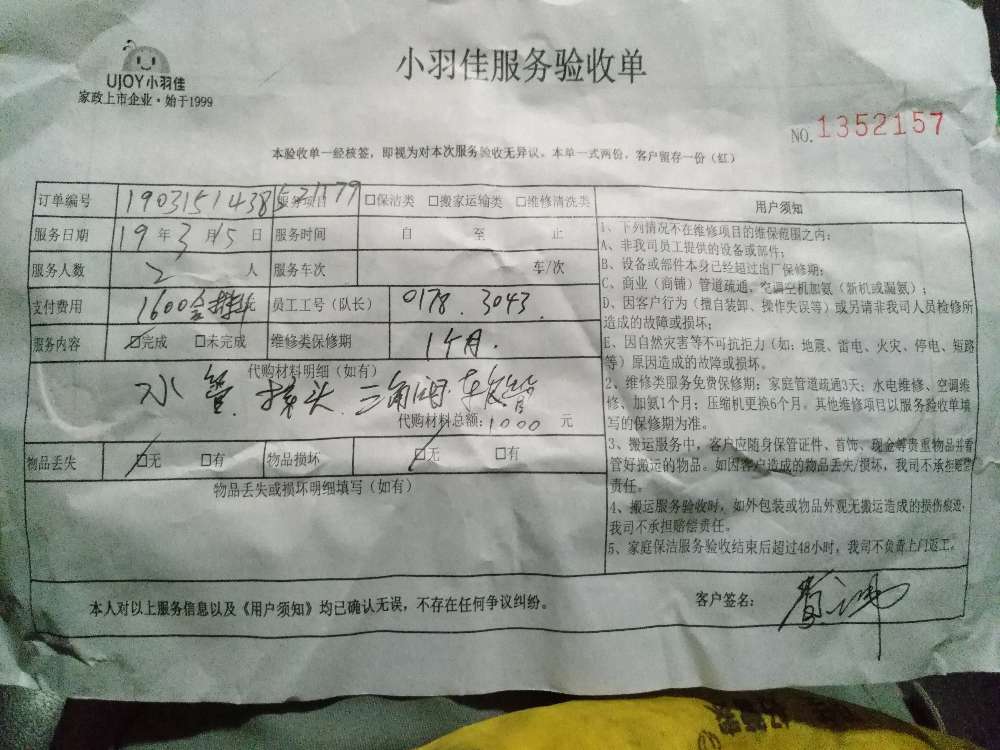 UJOY小羽佳
家政上市企业·始于1999
小羽佳服务验收单
NO.1352157
本验收单一经核签，即视为对本次服务验收无异议。本单一式两份，客户留存一份（红）
订单编号 190315143852179 服务项目 □保洁类 □搬家运输类 □维修清洗类
服务日期 19年3月15日 服务时间 自 至 止
服务人数 2人 服务车次 车/次
支付费用 1600 元 员工工号（队长） 0178. 3043.
服务内容 □完成 □未完成 维修类保修期 1个月.
代购材料明细（如有）
水管.接头.三角阀.软管
代购材料总额：1000 元
物品丢失 □无 □有 物品损坏 □无 □有
物品丢失或损坏明细填写（如有）
用户须知
1、下列情况不在维修项目的维保范围之内：
A、非我司员工提供的设备或部件；
B、设备或部件本身已经超过出厂保修期；
C、商业（商铺）管道疏通、空调空机加氨（新机或漏氨）；
D、因客户行为（擅自装卸、操作失误等）或另请非我司人员检修所
造成的故障或损坏；
E、因自然灾害等不可抗拒力（如：地震、雷电、火灾、停电、短路
等）原因造成的故障或损坏。
2、维修类服务免费保修期：家庭管道疏通3天；水电维修、空调维
修、加氨1个月；压缩机更换6个月。其他维修项目以服务验收单填
写的保修期为准。
3、搬运服务中，客户应随身保管证件、首饰、现金等贵重物品并看
管好搬运的物品。如因客户造成的物品丢失/损坏，我司不承担赔偿
责任。
4、搬运服务验收时，如外包装或物品外观无搬运造成的损伤痕迹，
我司不承担赔偿责任。
5、家庭保洁服务验收结束后超过48小时，我司不负责上门返工。
本人对以上服务信息以及《用户须知》均已确认无误，不存在任何争议纠纷。
客户签名：